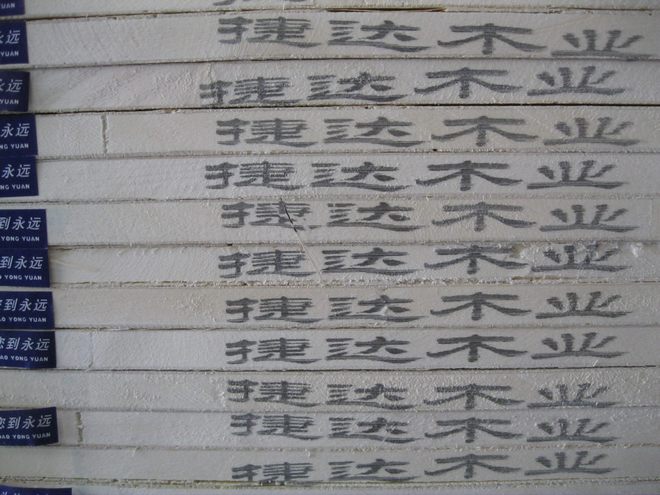 永远
YUAN
捷达木业
永远
YUAN
捷达木业
到永远
YONG YUAN
捷达木业
永远
YONG YUAN
捷达木业
到永远
YONG YUAN
捷达木业
到永远
YONG YUAN
捷达木业
到永远
YONG YUAN
捷达木业
您到永远
DAO YONG YUAN
捷达木业
捷达木业
您到永远
DAO YONG YUAN
捷达木业
捷达木业